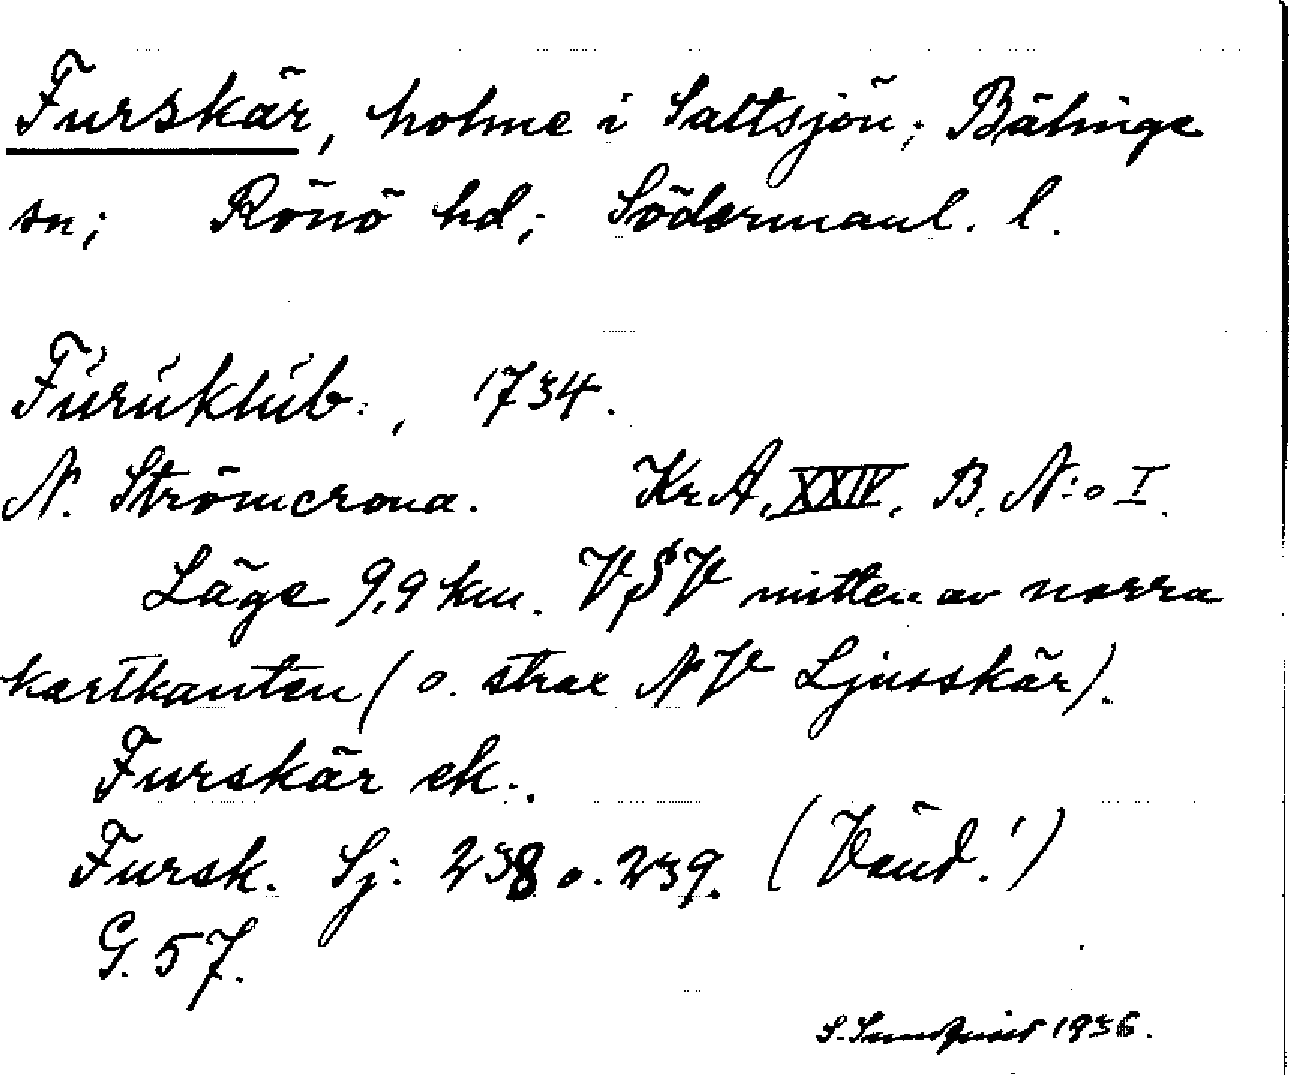 Furskär, holme i Saltsjön; Bälinge
sn; Rönö hd; Södermanl. l.
Furuklub:, 1734.
N. Strömcrona. Kr.A. XXIV. B. N:o I.
Läge 9,9 km. VSV mitten av norra
kartkanten (o. strax NV Ljusskär).
Furskär ek.
Fursk. Sj: 238 o. 239. (Vänd!)
G. 57.
S. Sundquist 1936.